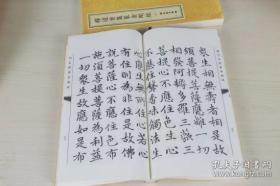 眾生相無壽者相是故
須菩提菩薩應離一切
相發阿耨多羅三藐三
菩提心不應住色生心
不應住聲香味觸法生
心應生無所住心若心
有住則為非住是故佛
說菩薩心不應住色布
施須菩提菩薩為利益
一切眾生故應如是布
孔夫子旧书网